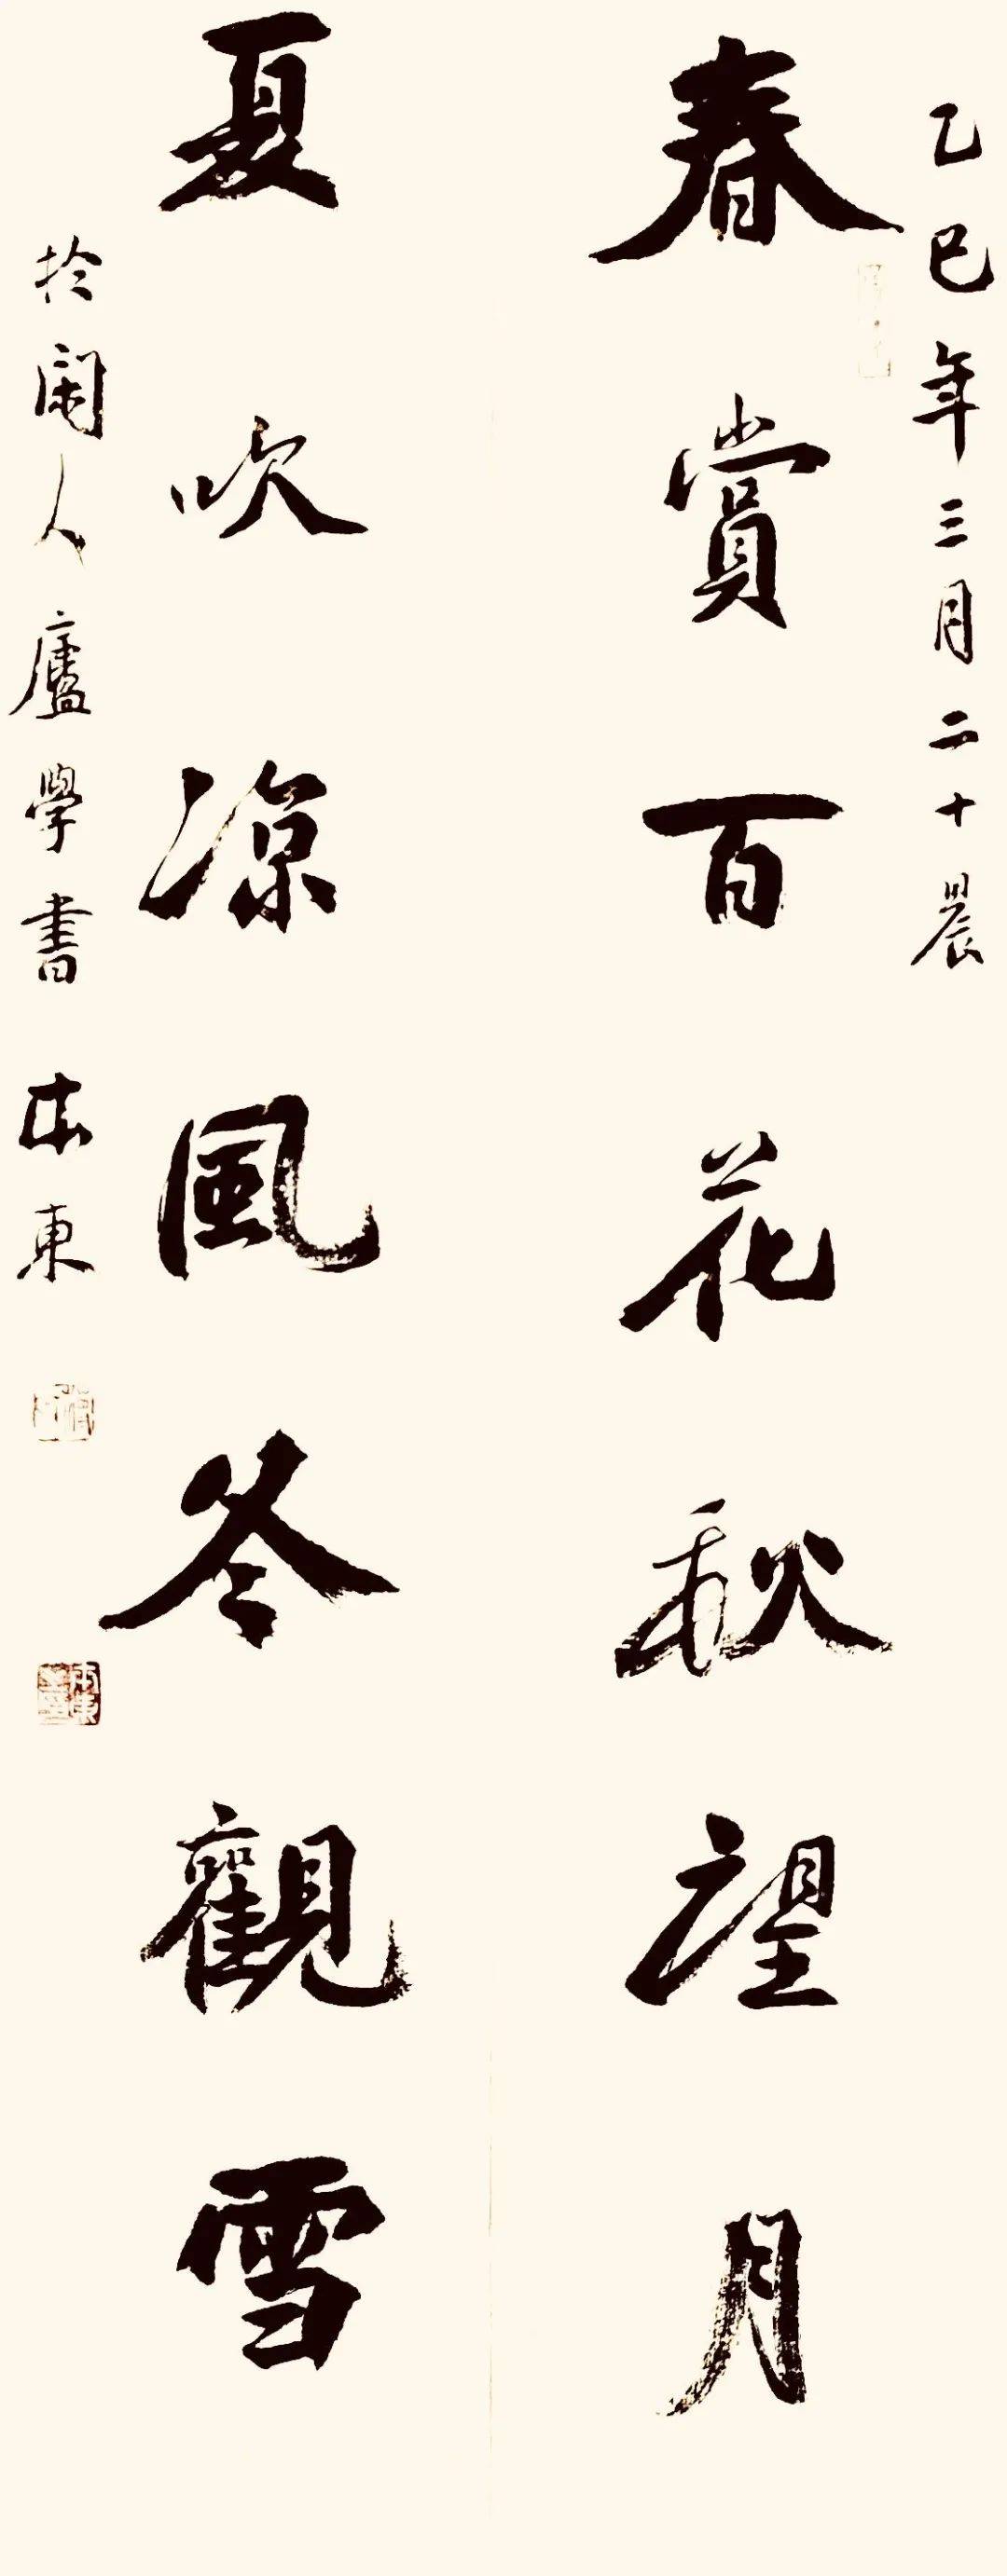 乙巳年三月二十晨
春賞百花秋望月
夏吹凉風冬觀雪
於閑人廬學書 本東